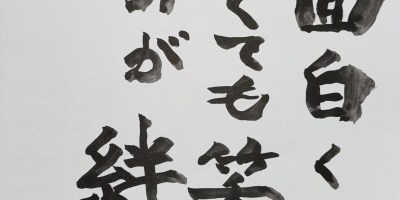 面白く
くても笑
が絆